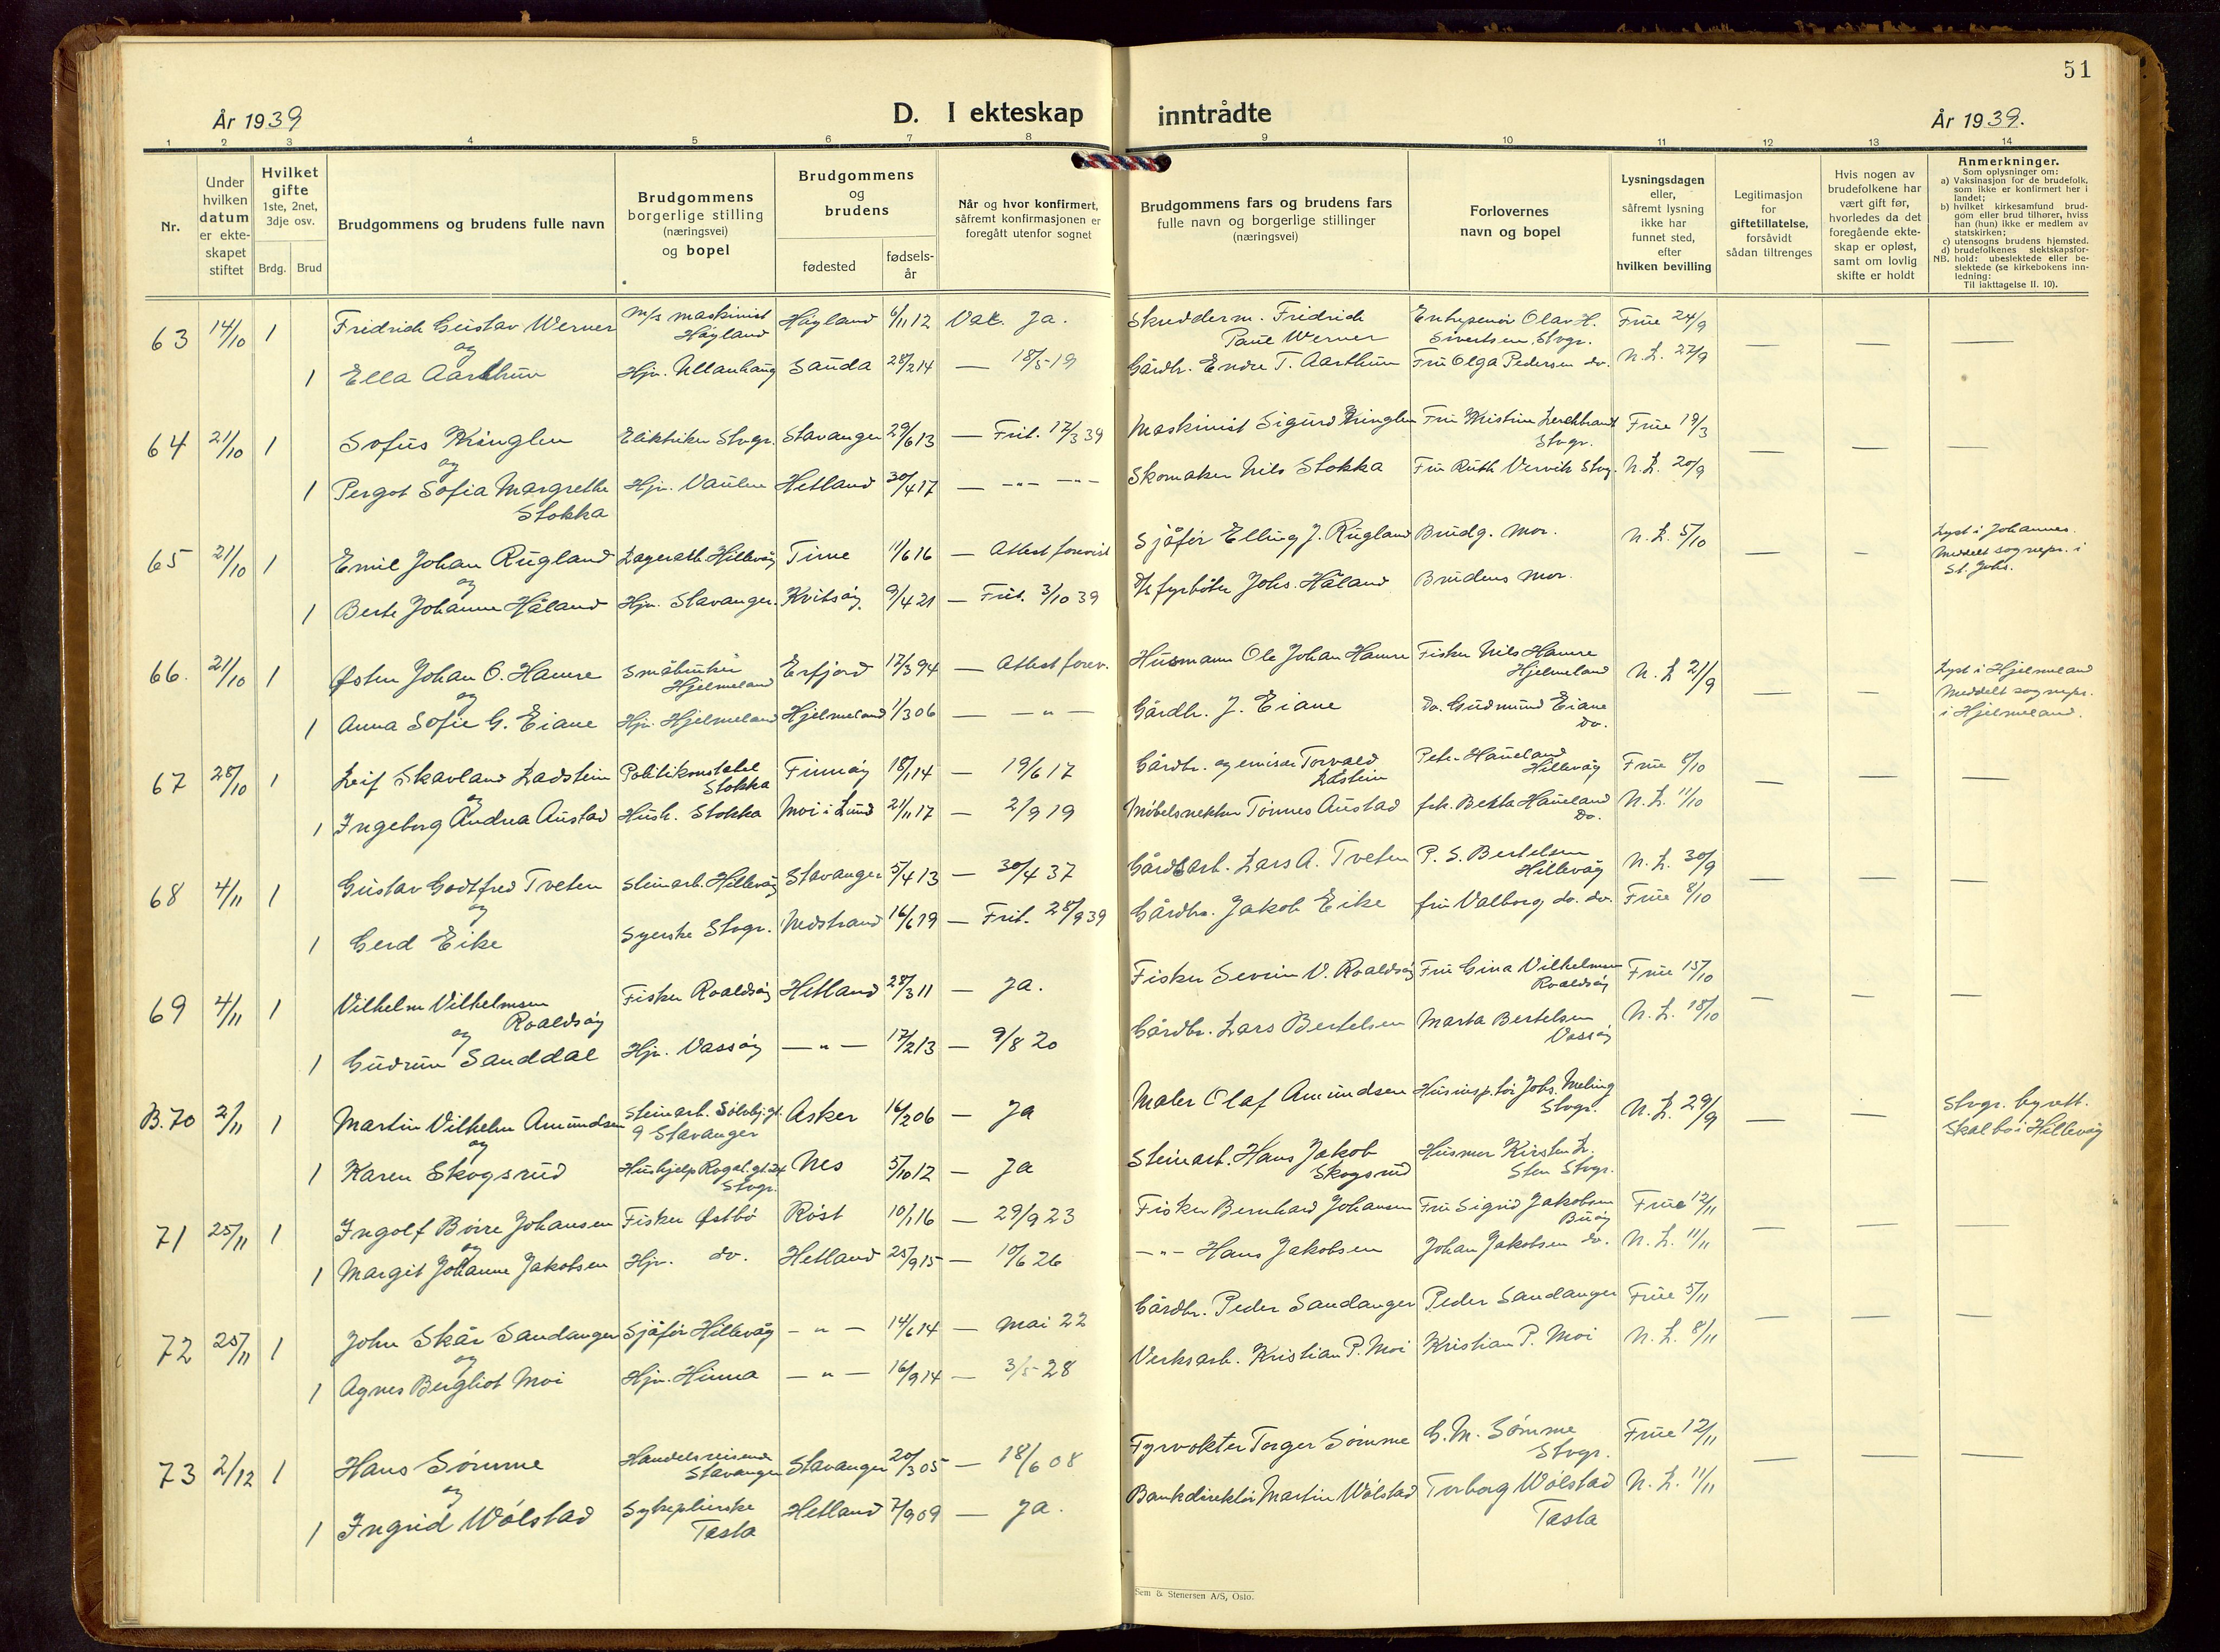 51
År 1939
D. I ekteskap inntrådte
År 1939.
1 2 3 4 5 6 7 8 9 10 11 12 13 14
Nr.
Under hvilken datum er ekteskapet stiftet
Hvilket gifte 1ste, 2net, 3dje osv.
Brdg. Brud
Brudgommens og brudens fulle navn
Brudgommens borgerlige stilling (næringsvei) og bopel
Brudgommens og brudens
fødested
fødselsår
Når og hvor konfirmert, såfremt konfirmasjonen er foregått utenfor sognet
Brudgommens fars og brudens fars fulle navn og borgerlige stillinger (næringsvei)
Forlovernes navn og bopel
Lysningsdagen eller, såfremt lysning ikke har funnet sted, efter hvilken bevilling
Legitimasjon for giftetillatelse, forsåvidt sådan tiltrenges
Hvis nogen av brudefolkene har vært gift før, hvorledes da det foregående ekteskap er opløst, samt om lovlig skifte er holdt
Anmerkninger.
Som oplysninger om:
a) Vaksinasjon for de brudefolk, som ikke er konfirmert her i landet;
b) hvilket kirkesamfund brudgom eller brud tilhører, hviss han (hun) ikke er medlem av statskirken;
c) utensogns brudens hjemsted.
d) brudefolkenes slektskapsforhold: ubeslektede eller beslektede (se kirkebokens innledning:
NB. Til iakttagelse II. 10).
63 14/10 1 Fridrich Gustav Werner m/s maskinist Høyland Høyland 6/11 12 Vak. Ja. Skredderm. Fridrich Paul Werner Entrepenör Olav H. Sivertsen, Stvgr. Frue 24/9
og
1 Ella Aarthun Hjv. Ullanhaug Sauda 28/2 14 — 18/5 19 Gårdbr. Endre T. Aarthun Fru Olga Pedersen do. N. L. 27/9
64 21/10 1 Sofus Kringlen Elektriker Stvgr. Stavanger 29/6 13 — Frit. 17/3 39 Maskinist Sigurd Kringlen Fru Kristine Stvgr. Frue 19/3
og
1 Pergot Sofia Margrethe Stokka Hjv. Vaulen Hetland 30/4 17 — -"- -"- Skomaker Nils Stokka Fru Ruth Vervik Stvg. N. L. 20/9
65 21/10 1 Emil Johan Rugland Lagerarb. Hillevåg Time 11/6 16 — Attest forevist Sjåför Elling J. Rugland Brudg. mor. N. L. 5/10 Lyst i Johannes. Meddelt sognepr. i St. Johs.
og
1 Berte Johanne Håland Hjv. Stavanger. Kvitsøy 9/4 21 — Frit. 3/10 39 D/s fyrböter Johs. Håland Brudens mor.
66. 21/10 1 Østen Johan O. Hamre Småbruker Hjelmeland Erfjord 17/3 94 — Attest forev. Husmann Ole Johan Hamre Fisker Nils Hamre Hjelmeland N. L 21/9 Lyst i Hjelmeland Meddelt sognepr. i Hjelmeland.
og
1 Anna Sofie G. Eiane Hjv. Hjelmeland Hjelmeland 1/3 06 — — " — Gårdbr. J. Eiane do. Gudmund Eiane do.
67 28/10 1 Leif Skavland Ladstein Politikonstabel Stokka Finnøy 18/1 14 — 19/6 17 Gårdbr. og emisær Torvald Ladstein Peter Haueland Hillevåg Frue 8/10
og
1 Ingeborg Andrea Austad Hush. Stokka Moi i Lund 21/11 17 — 2/9 19 Møbelsnekker Tönnes Austad frk. Berta Haueland do. N. L. 11/10
68 4/11 1 Gustav Godtfred Tveten Steinarb. Hillevåg Stavanger 5/4 13 — 30/4 37 Gårdsarb. Lars A. Tveten P. S. Bertelsen Hillevåg N. L. 30/9
og
1 Gerd Eike Syerske Stvgr. Nedstrand 16/6 19 — Frit. 28/9 39 Gårdbr. Jakob Eike fru Valborg do. do. Frue 8/10
69 4/11 1 Vilhelm Vilhelmsen Roaldsøy Fisker Roaldsøy Hetland 28/3 11 — Ja. Fisker Severin V. Roaldsøy Fru Gina Vilhelmsen Roaldsøy Frue 15/10
og
1 Gudrun Sanddal Hjv. Vassøy — " — 17/2 13 — 9/8 20 Gårdbr. Lars Bertelsen Marta Bertelsen Vassøy N. L. 18/10
B. 70 2/11 1 Martin Vilhelm Amundsen Steinarb. Sölvbj.gt. 9 Stavanger Asker 16/2 06 — Ja Maler Olaf Amundsen Husinsp.tör Johs. Meling Stvgr. N. L. 29/9 Stvgr. byrett. Skal bo i Hillevåg
og
1 Karen Skogsrud Hushjelp Rogal.gt. 24 Stvgr. Nes 5/10 12 — Ja Steinarb. Hans Jakob Skogsrud Husmor Kirsten L. Sten Stvgr.
71 25/11 1 Ingolf Börre Johansen Fisker Østbö Röst 10/1 16 — 29/9 23 Fisker Bernhard Johansen Fru Sigrid Jakobsen Buøy Frue 12/11
og
1 Margit Johanne Jakobsen Hjv. do. Hetland 25/9 15 — 10/6 26 -"- Hans Jakobsen Johan Jakobsen do. N. L. 11/11
72 25/11 1 John Skår Sandanger Sjåför Hillevåg — " — 14/6 14 — Mai 22 Gårdbr. Peder Sandanger Peder Sandanger Frue 5/11
og
1 Agnes Bergliot Moi Hjv. Hinna — " — 16/9 14 — 3/5 28 Verksarb. Kristian P. Moi Kristian P. Moi N. L. 8/11
73 2/12 1 Hans Sömme Handelsreisende Stavanger Stavanger 20/3 05 — 18/6 08 Fyrvokter Torger Sömme G. M. Sömme Stvgr. Frue 12/11
og
1 Ingrid Wölstad Sykepleierske Tasta Hetland 7/9 09 — Ja. Bankdirektör Martin Wölstad Torborg Wölstad Tasta N. L. 11/11
Sem & Stenersen A/S, Oslo.